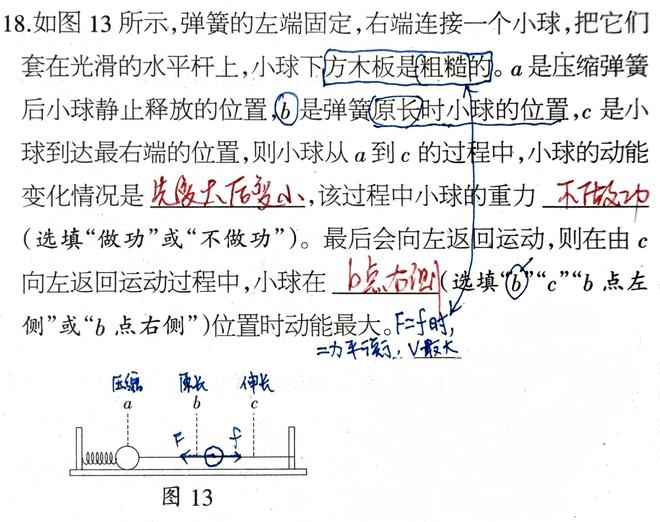 18.如图 13 所示,弹簧的左端固定,右端连接一个小球,把它们
套在光滑的水平杆上,小球下方木板是粗糙的。a 是压缩弹簧
后小球静止释放的位置,b 是弹簧原长时小球的位置,c 是小
球到达最右端的位置,则小球从 a 到 c 的过程中,小球的动能
变化情况是 先变大后变小,该过程中小球的重力 不做功
(选填“做功”或“不做功”)。最后会向左返回运动,则在由 c
向左返回运动过程中,小球在 b点右侧(选填“b”“c”“b 点左
侧”或“b 点右侧”)位置时动能最大。F=f时,
二力平衡,V最大
压缩 原长 伸长
a b c
F f
图 13